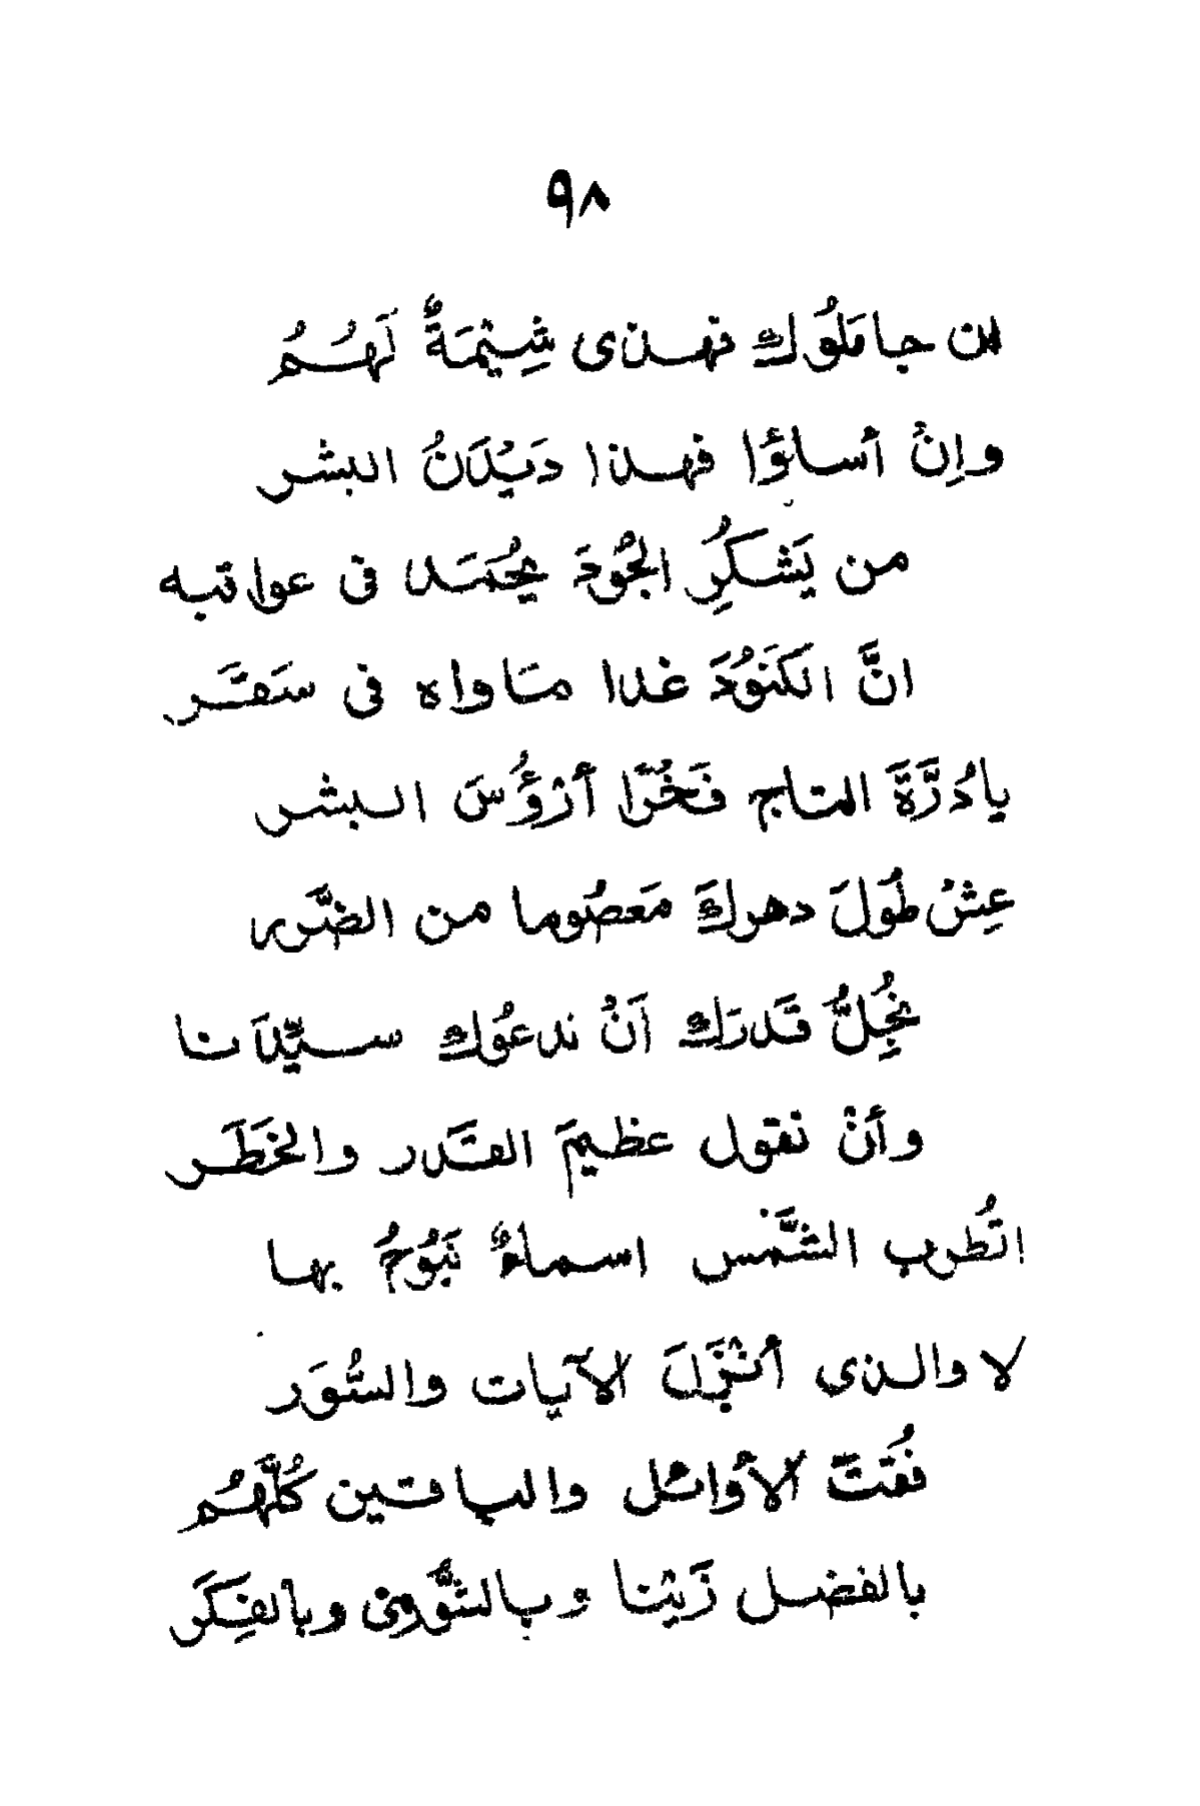 ٩٨
ان جاملوك فهذى شِيْمَةٌ لَهُمُ
وإنْ أساؤا فهذا دَيْدَنُ البشر
من يَشكُرِ الجُودَ يُحمَد فى عواقبه
انَّ الكَنَوُدَ غدا مَاواه فى سَقَر
يا دُرَّةَ التاج فَخْرًا أرْؤُسَ البشر
عِشْ طُولَ دهركَ مَعصُوما من الضَّرر
نُجِلُّ قَدرَك اَنْ ندعُوك سيِّدَنا
وأنْ نقول عظيمَ القَدر والخَطَر
اتُطرب الشَّمس اسماءٌ نَبُوحُ بها
لا والذى أنْزَلَ الآيات والسُّوَر
فُقتَ الأوائل والباقين كُلَّهُمُ
بالفضل زَيْنا وبالشُّورىٰ وبالفِكَر